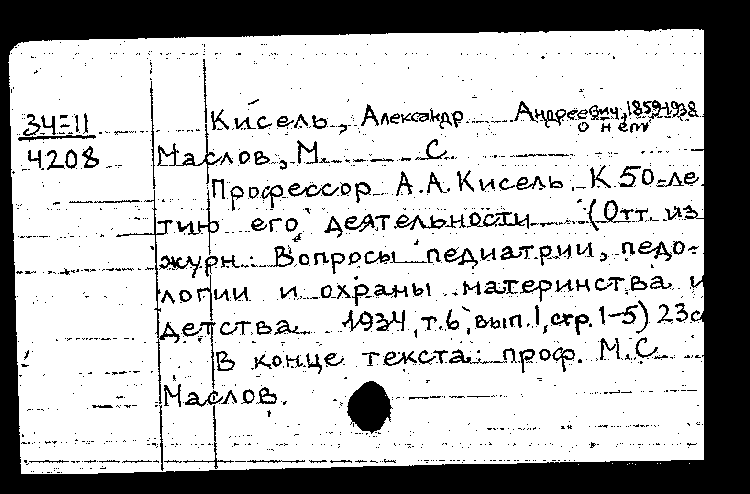 34-11 Кисель, Александр Андреевич, 1859-1938
о нем
4208 Маслов, М. С.
Профессор А.А. Кисель. К 50-ле
тию его деятельности (Отт. из
журн: Вопросы педиатрии, педо-
логии и охраны материнства и
детства 1934, т.6, вып.1, стр. 1-5) 23с
В конце текста: проф. М.С.
Маслов.